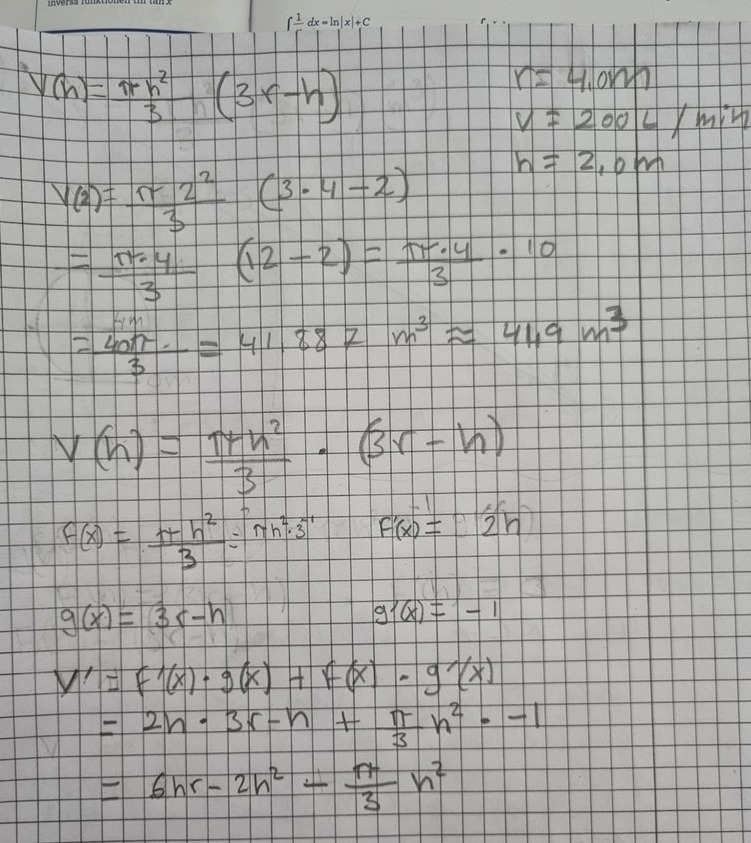 inversa funktionen till tan x
∫ 1/x dx = ln|x| + C
V(h) = πh²/3 (3r-h)
r = 4,0m
V = 200 L/min
h = 2,0m
V(2) = π 2²/3 (3·4-2)
= π·4/3 (12-2) = π·4/3 · 10
= 40π/3 = 41,887 m³ ≈ 41,9 m³
V(h) = πh²/3 · (3r-h)
f(x) = πh²/3 = πh²·3⁻¹ f'(x) = 2h
g(x) = 3r-h g'(x) = -1
V' = f'(x)·g(x) + f(x)·g'(x)
= 2h·3r-h + π/3 h² · -1
= 6hr - 2h² - π/3 h²